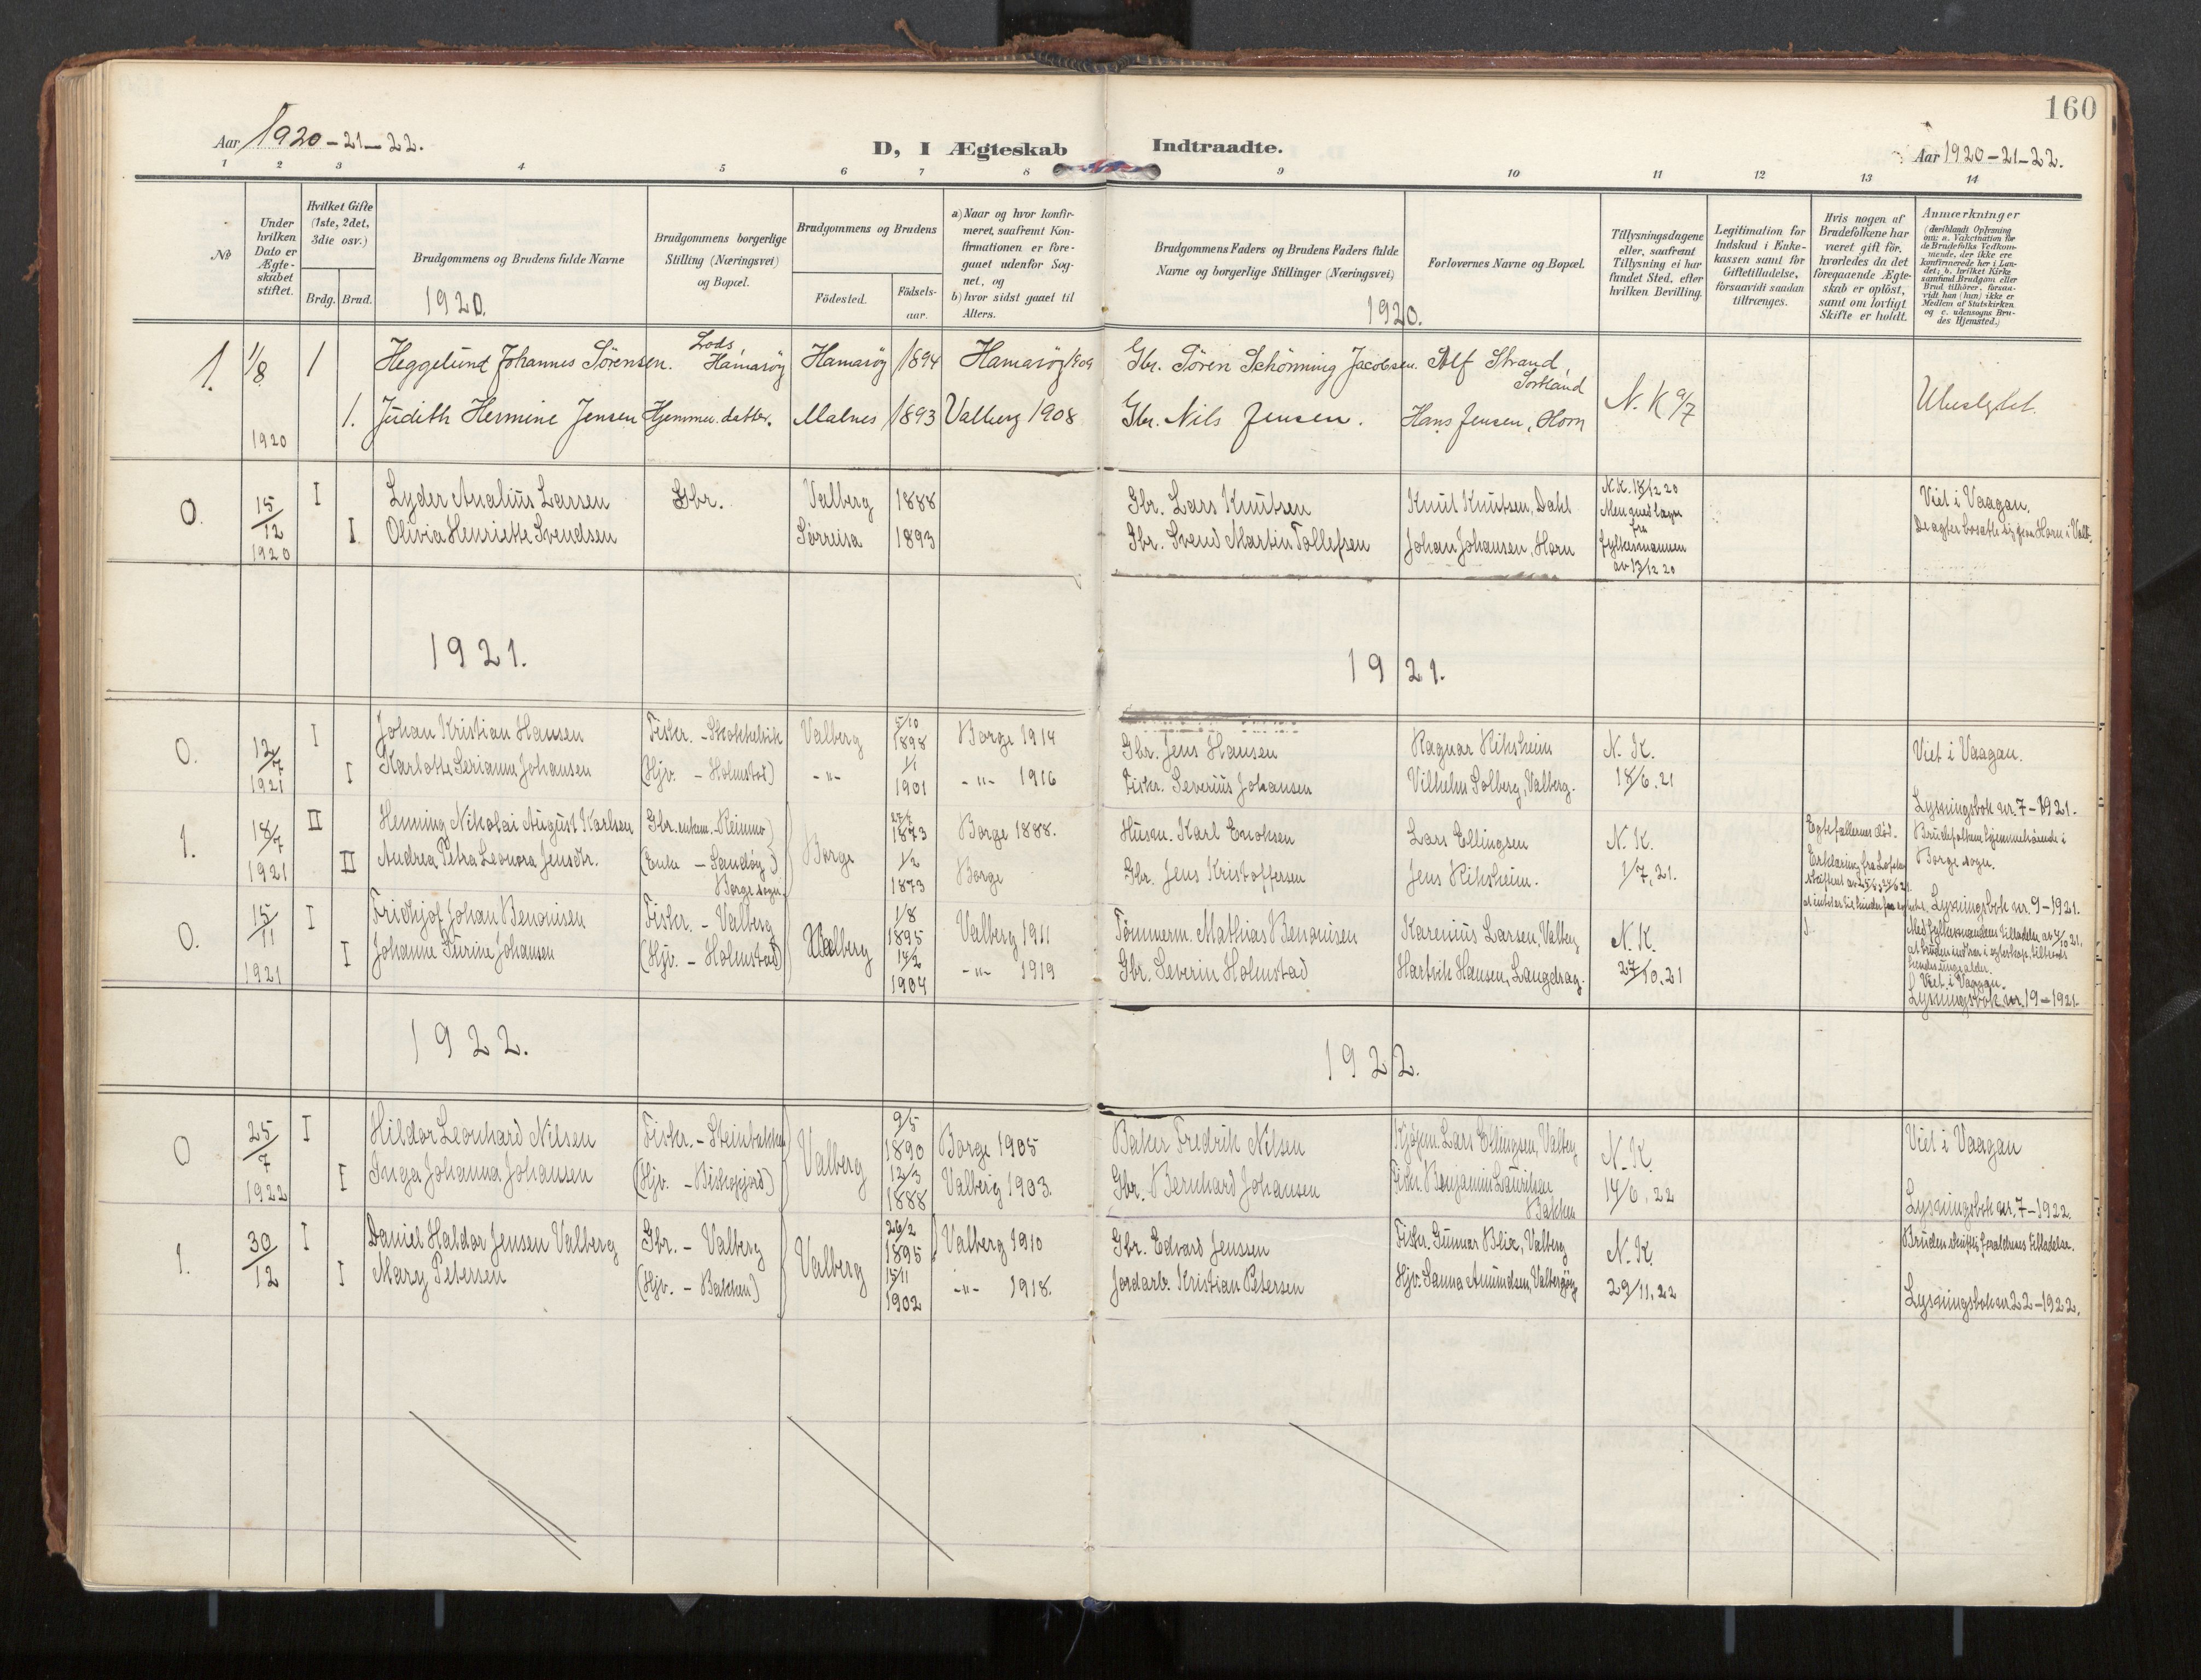 160
Aar 1920-21-22.
D, I Ægteskab Indtraadte.
Aar 1920-21-22.
1 2 3 4 5 6 7 8 9 10 11 12 13 14
No
Under hvilken Dato er Ægteskabet stiftet.
Hvilket Gifte (1ste, 2det, 3die osv.)
Brdg. Brud.
Brudgommens og Brudens fulde Navne
Brudgommens borgerlige Stilling (Næringsvei) og Bopæl.
Brudgommens og Brudens
Födested. Födsels-aar.
a) Naar og hvor konfirmeret, saafremt Konfirmationen er foregaaet udenfor Sognet, og
b) hvor sidst gaaet til Alters.
Brudgommens Faders og Brudens Faders fulde Navne og borgerlige Stillinger (Næringsvei)
Forlovernes Navne og Bopæl.
Tillysningsdagene eller, saafremt Tillysning ei har fundet Sted, efter hvilken Bevilling.
Legitimation for Indskud i Enkekassen samt for Giftetilladelse, forsaavidt saadan tiltrænges.
Hvis nogen af Brudefolkene har været gift för, hvorledes da det foregaaende Ægteskab er oplöst, samt om lovligt Skifte er holdt.
Anmærkninger (deriblandt Oplysning om: a. Vakcination for de Brudefolks Vedkommende, der ikke ere konfirmerede her i Landet; b. hvilket Kirkesamfund Brudgom eller Brud tilhörer, forsaavidt han (hun) ikke er Medlem af Statskirken og c. udensogns Brudes Hjemsted.)
1920. 1920.
1. 1/8 1 Heggelund Johannes Sørensen. Lods, Hamarøy Hamarøy 1894 Hamarøy 1909 Gbr. Søren Schønning Jacobsen. Alf Strand, Sortland
1920 1. Judith Hermine Jensen Hjemmev. datter. Malnes 1893 Valberg 1908 Gbr. Nils Jensen. Hans Jensen, Horn N. K. 9/7 Ubeslegtet.
0. 15/12 1920 I Lyder Analius Larsen Gbr. Valberg 1888 Gbr. Lars Knutsen Knut Knutsen, Dahl N.K. 18/12 20 Viet i Vaagan.
I Olivia Henriette Svendsen Sørreisa 1893 Gbr. Svend Martin Tollefsen Johan Johansen, Horn fra fylkesmannen av 13/12 20 De agter bosætte sig paa Horn i Valb.
1921. 1921.
0. 12/7 1921 I Johan Kristian Hansen Fisker. - Skokkelvik Valberg 5/10 1898 Borge 1914 Gbr. Jens Hansen Ragnar Rihsheim N. K. Viet i Vaagan.
I Karlotte Serianna Johansen (Hjv. - Holmstad) -"- 1/1 1901 -"- 1916 Fisker. Severius Johansen Vilhelm Solberg, Valberg. 18/6. 21
Lysningsbok nr. 7-1921.
1. 18/7 1921 II Henning Nikolai August Karlsen Gbr. enkem. - Reinmo Borge 1873 Borge 1888. Husm. Karl Enoksen Lars Ellingsen N. K. Egtefællernes död. Brudefolkene hjemmehörende i Borge sogn.
II Andrea Petra Leonora Jensdtr. (Enke - Sandöy) Borge sogn. 1/2 1873 Borge Gbr. Jens Kristoffersen Jens Rihsheim. 1/7, 21. Erklæring fra
Lysningsbok nr. 9-1921.
0. 15/11 1921 I Fridthjof Johan Benonisen Fisker. - Valberg Valberg 1/8 1895 Valberg 1911 Tømmerm. Mathias Benonisen Karenius Larsen, Valberg N. K. Med fylkesmandens tilladelse av 4/10 21, at bruden indtrær i egteskap, tiltrods hendes unge alder.
I Johanne Turine Johansen (Hjv. - Holmstad) 14/2 1904 -"- 1919 Gbr. Severin Holmstad Hartvik Hansen, Langdrag. 27/10. 21 Viet i Vaagan.
Lysningsbok nr. 19-1921.
1922. 1922.
0 25/7 1922 I Hildor Leonhard Nilsen Fisker. - Steinbakken Valberg 9/5 1890 Borge 1905 Baker Fredrik Nilsen Kjøpm. Lars Ellingsen, Valberg N. K. Viet i Vaagan
I Inga Johanna Johansen (Hjv. - Bishopjord) 12/3 1888 Valberg 1903. Gbr. Bernhard Johansen Fisker Benjamin Lauritsen Bakken 14/6. 22
Lysningsbok nr. 7-1922.
1. 30/12 I Daniel Haldor Jensen Valberg Gbr. - Valberg Valberg 26/2 1895 Valberg 1910 Gbr. Edvard Jenssen Fisker. Gunnar Blix, Valberg N. K. Bruden skriftl. foraldrenes tilladelse.
I Mary Petersen (Hjv. - Bakken) 15/11 1902 -"- 1918. Jordarb. Kristian Petersen Hjv. Sanna Amundsen, Valbergöy 29/11. 22
Lysningsbok nr 22-1922.